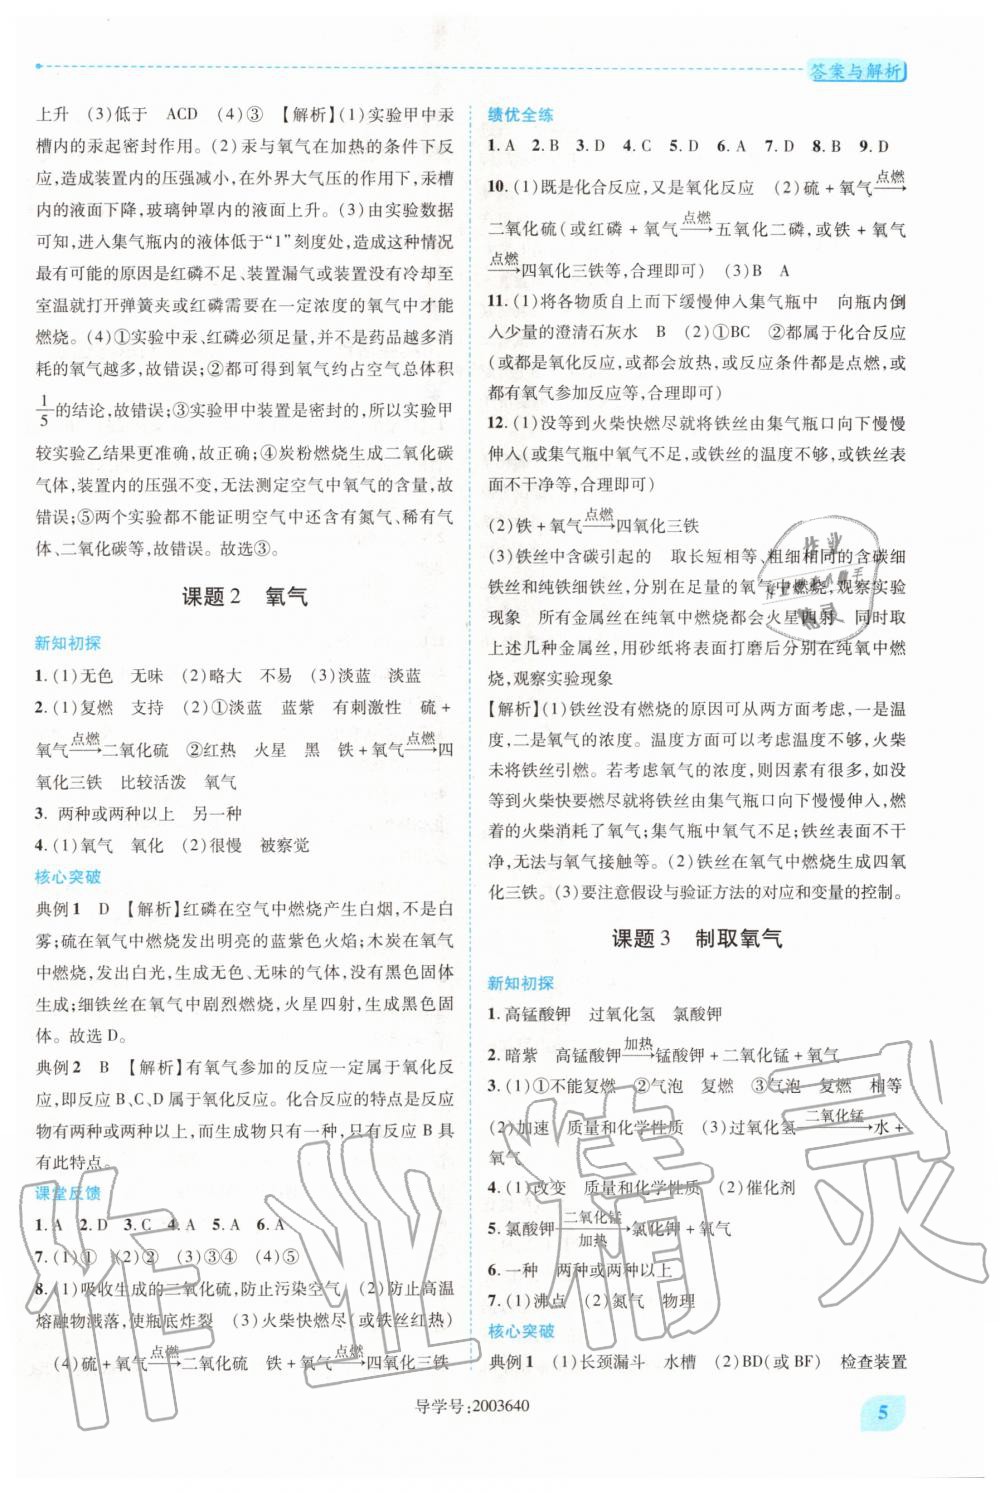 答案与解析
上升 (3)低于 ACD (4)③ 【解析】(1)实验甲中汞
槽内的汞起密封作用。(2)汞与氧气在加热的条件下反
应,造成装置内的压强减小,在外界大气压的作用下,汞槽
内的液面下降,玻璃钟罩内的液面上升。(3)由实验数据
可知,进入集气瓶内的液体低于“1”刻度处,造成这种情况
最有可能的原因是红磷不足、装置漏气或装置未冷却至
室温就打开弹簧夹或红磷需要在一定浓度的氧气中才能
燃烧。(4)①实验中汞、红磷必须足量,并不是药品越多消
耗的氧气越多,故错误;②都可得到氧气约占空气总体积
1/5的结论,故错误;③实验甲中装置是密封的,所以实验甲
较实验乙结果更准确,故正确;④炭粉燃烧生成二氧化碳
气体,装置内的压强不变,无法测定空气中氧气的含量,故
错误;⑤两个实验都不能证明空气中还含有氮气、稀有气
体、二氧化碳等,故错误。故选③。
课题2 氧气
新知初探
1. (1)无色 无味 (2)略大 不易 (3)淡蓝 淡蓝
2. (1)复燃 支持 (2)①淡蓝 蓝紫 有刺激性 硫+
氧气 点燃→二氧化硫 ②红热 火星 黑 铁+氧气 点燃→四
氧化三铁 比较活泼 氧气
3. 两种或两种以上 另一种
4. (1)氧气 氧化 (2)很慢 被察觉
核心突破
典例1 D 【解析】红磷在空气中燃烧产生白烟,不是白
雾;硫在氧气中燃烧发出明亮的蓝紫色火焰;木炭在氧气
中燃烧,发出白光,生成无色、无味的气体,没有黑色固体
生成;细铁丝在氧气中剧烈燃烧,火星四射,生成黑色固
体。故选D。
典例2 B 【解析】有氧气参加的反应一定属于氧化反
应,即反应B、C、D属于氧化反应。化合反应的特点是反应
物有两种或两种以上,而生成物只有一种,只有反应B具
有此特点。
课堂反馈
1. A 2. D 3. C 4. A 5. A 6. A
7. (1)① (2)② (3)③④ (4)⑤
8. (1)吸收生成的二氧化硫,防止污染空气 (2)防止高温
熔融物溅落,使瓶底炸裂 (3)火柴快燃尽(或铁丝红热)
(4)硫+氧气 点燃→二氧化硫 铁+氧气 点燃→四氧化三铁
绩优全练
1. A 2. B 3. D 4. C 5. D 6. A 7. D 8. B 9. D
10. (1)既是化合反应,又是氧化反应 (2)硫+氧气 点燃→
二氧化硫(或红磷+氧气 点燃→五氧化二磷,或铁+氧气
点燃→四氧化三铁等,合理即可) (3)B A
11. (1)将各物质自上而下缓慢伸入集气瓶中 向瓶内倒
入少量的澄清石灰水 B (2)①BC ②都属于化合反应
(或都是氧化反应,或都会放热,或反应条件都是点燃,或
都有氧气参加反应等,合理即可)
12. (1)没等到火柴快燃尽就将铁丝由集气瓶口向下慢慢
伸入(或集气瓶中氧气不足,或铁丝的温度不够,或铁丝表
面不干净等,合理即可)
(2)铁+氧气 点燃→四氧化三铁
(3)铁丝中含碳引起的 取长短相等、粗细相同的含碳细
铁丝和纯铁细铁丝,分别在足量的氧气中燃烧,观察实验
现象 所有金属丝在纯氧中燃烧都会火星四射 可取
上述几种金属丝,用砂纸将表面打磨后分别在纯氧中燃
烧,观察实验现象
【解析】(1)铁丝没有燃烧的原因可从两方面考虑,一是温
度,二是氧气的浓度。温度方面可以考虑温度不够,火柴
未将铁丝引燃。若考虑氧气的浓度,则原因可能为:没
等到火柴快要燃尽就将铁丝由集气瓶口向下慢慢伸入,燃
着的火柴消耗了氧气;集气瓶中氧气不足;铁丝表面不干
净,无法与氧气接触等。(2)铁丝在氧气中燃烧生成四氧
化三铁。(3)要注意假设与验证方法的对应和变量的控制。
课题3 制取氧气
新知初探
1. 高锰酸钾 过氧化氢 氯酸钾
2. 暗紫 高锰酸钾 加热→锰酸钾+二氧化锰+氧气
3. (1)①不能复燃 ②气泡 复燃 ③气泡 复燃 相等
(2)加速 质量和化学性质 (3)过氧化氢 二氧化锰→水+
氧气
4. (1)改变 质量和化学性质 (2)催化剂
5. 氯酸钾 二氧化锰/加热→氯化钾+氧气
6. 一种 两种或两种以上
7. (1)沸点 (2)氮气 物理
核心突破
典例1 (1)长颈漏斗 水槽 (2)BD(或BF) 检查装置
导学号:2003640
5
作业精灵